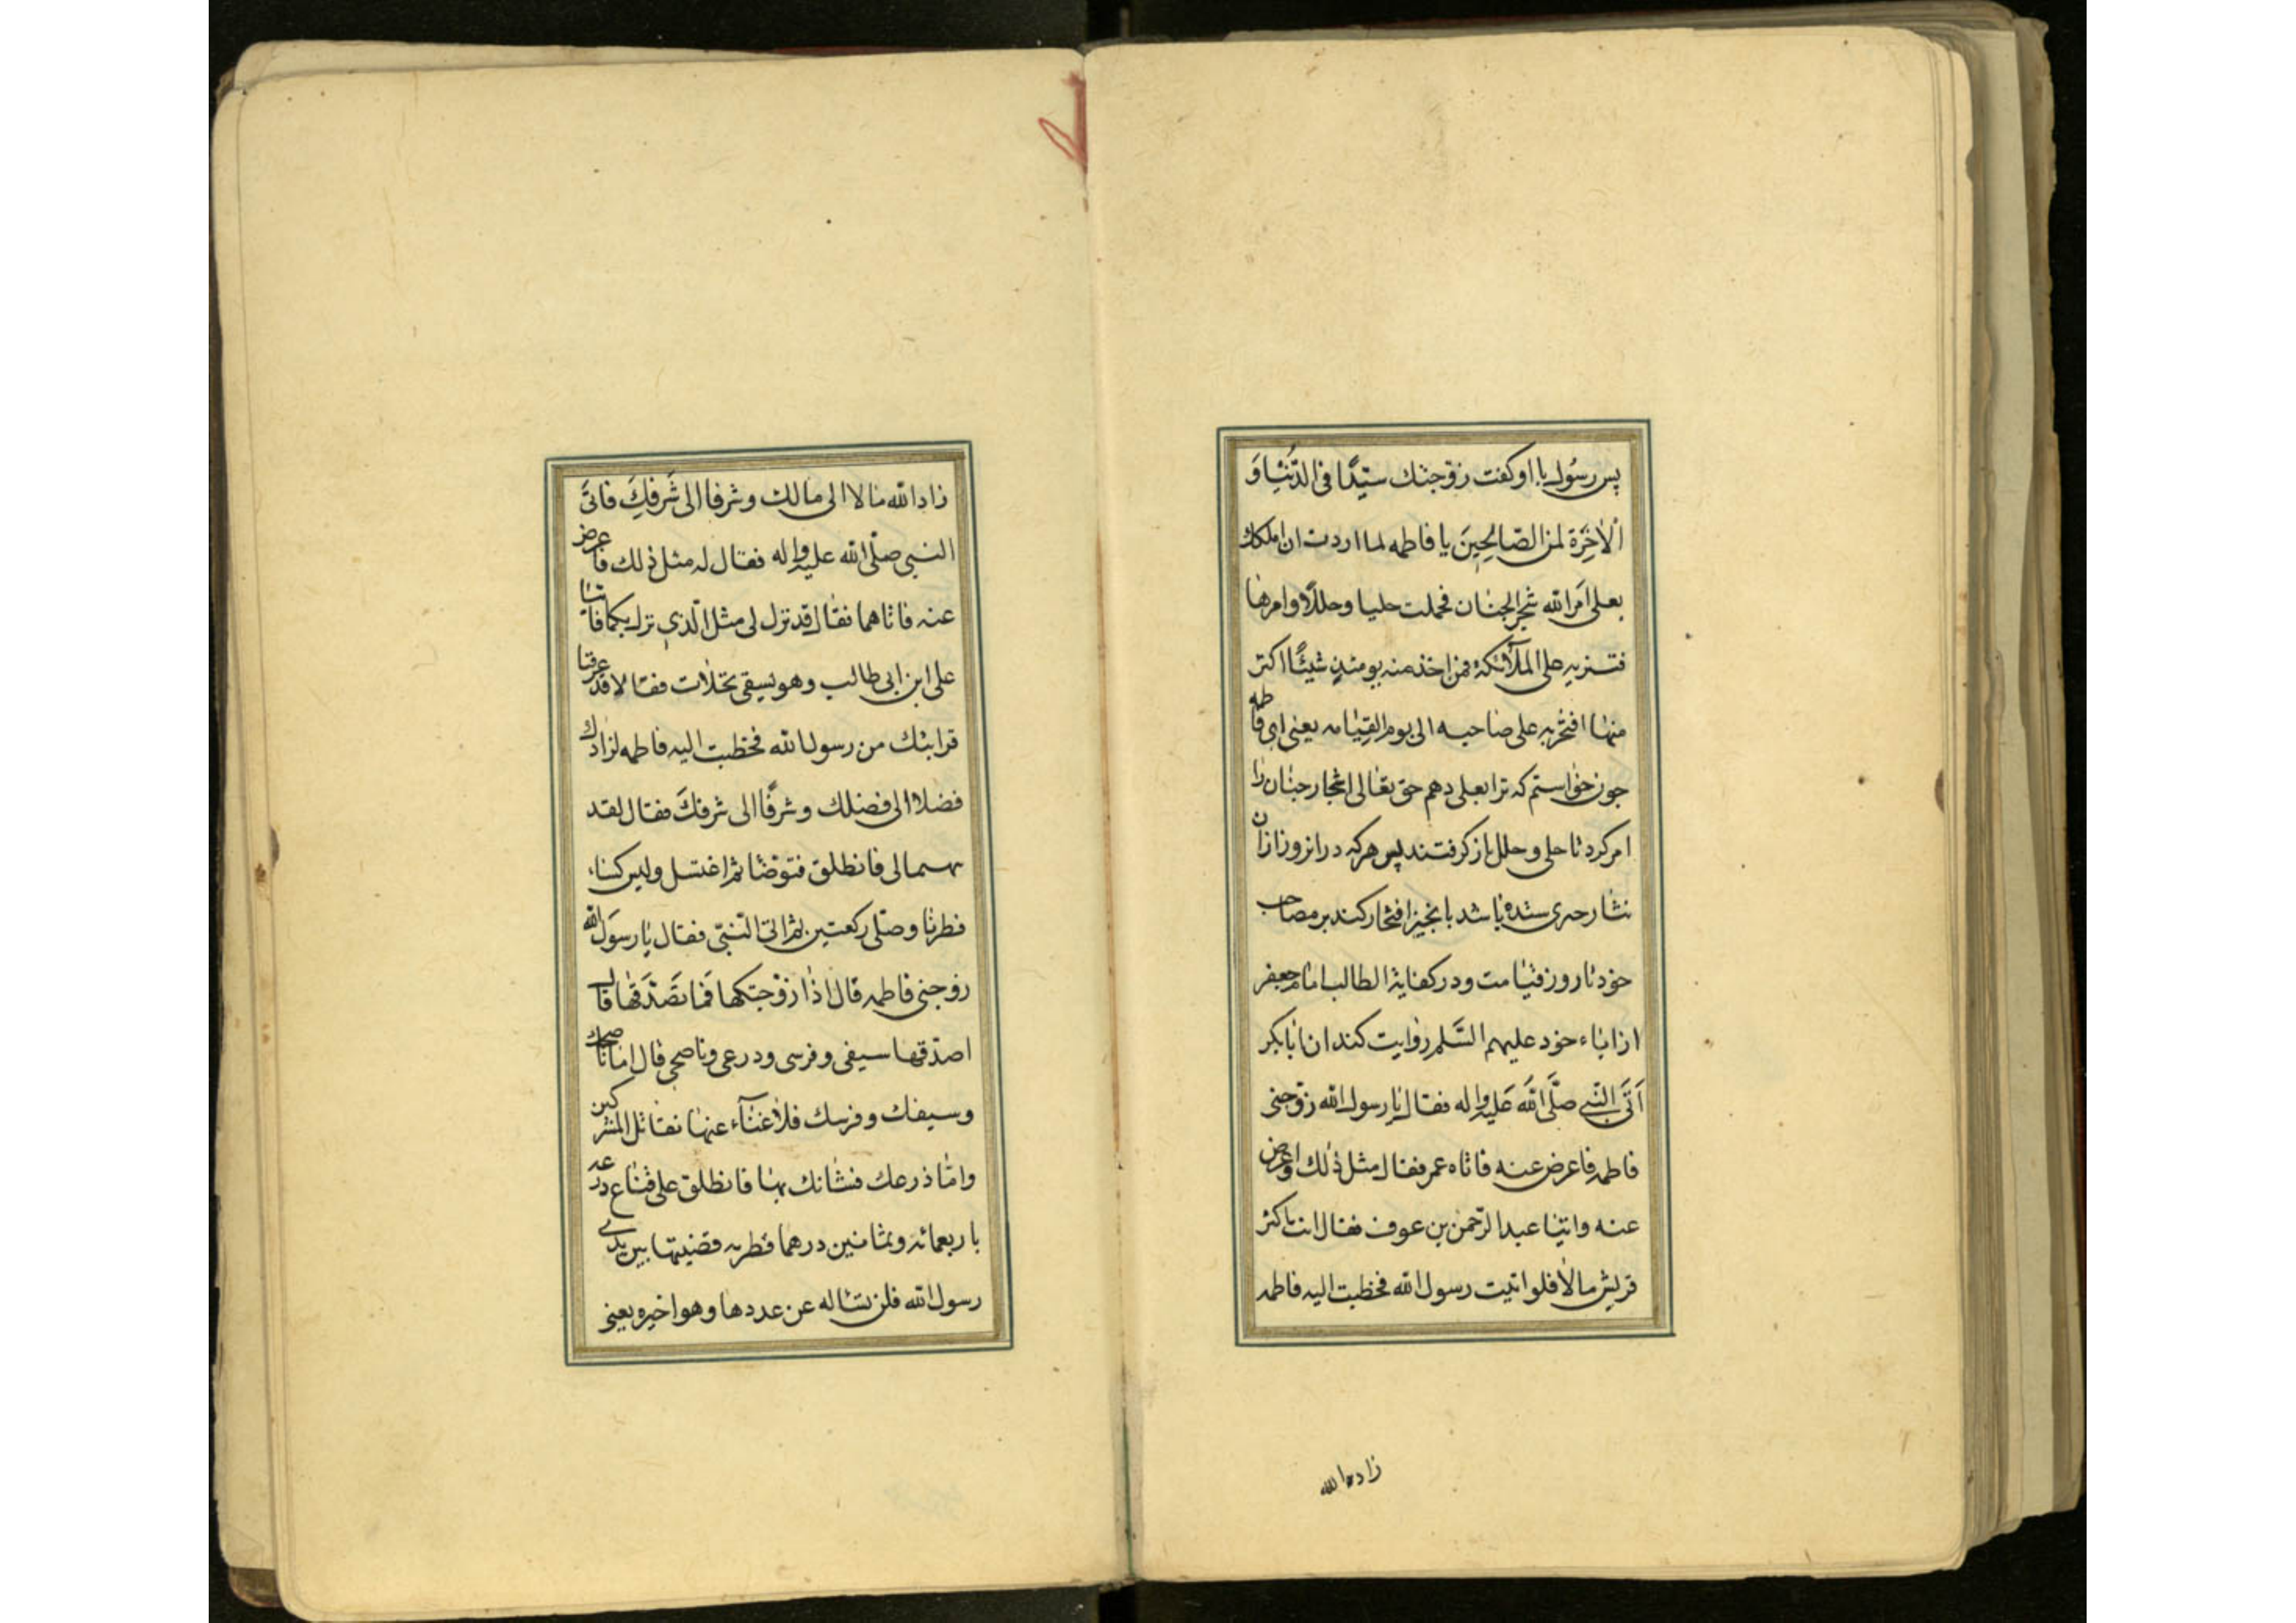 پس رسُول با او کفت زوّجتك سیّدًا فی الدّنیٰا وَ
الْاٰخِرَة لمن الصّالحِینَ یا فاطمه لما اردت ان املکك
بعلی اَمَر الله شجر الجنٰان فحملت حلیا و حللًا و امرها
فتنثریه علی الملٰٓائکة فمن اخذ منه یومئذٍ شیئًا اکثر
منهٰا افتخر به علی صٰاحبه الی یوم القیٰامه یعنی ای فاطمه
چون خوٰاستم که ترا بعلی دهم حق تعٰالی اشجار جنٰان رٰا
امر کرد تا حلی و حلل باز کرفتند پس هرکه در انروز ازان
نثار چیزی ستده بٰاشد بانچیز افتخار کند بر مصاحب
خود تا روز قیٰامت و در کفایة الطالب امام جعفر
از اباء خود علیهم السَّلم روٰایت کند ان ابٰا بکر
اَتَی النّبی صَلَّی اللّه عَلیه و اله فقال یٰا رسول الله زوّجنی
فاطمه فاعرض عنه فاتاه عمر فقال مثل ذٰلك و اعرض
عنه و اتیٰا عبد الرّحمن بن عوف فقال انت اکثر
قریش مالًا فلو اتیت رسول الله فخطبت الیه فاطمه
زاده الله
زاد الله مٰالا الی مالك و شرفا الی شَرفِكَ فاتیَ
النبی صلّی الله علیه و اله فقال له مثل ذٰلك فاعرض
عنه فاتاهما فقٰال قد نزل لی مثل الّذی نزل بکما فاتیٰا
علی ابن ابی طالب و هو یسقی نخلٰات فقالا قد عرفنا
قرابتك من رسول الله فخطبت الیه فاطمه لزادك
فضلا الی فضلك و شرفًا الی شرفكَ فقال لقد
نبهتمانی فانطلق فتوضّا ثم اغتسل و لبس کساء
قطریٰا و صلّی رکعتین ثم اتی النّبیّ فقال یٰا رسوَل الله
زوجنی فاطمه قال اذٰا زوّجتکها فَما تصَدَقهٰا قال
اصدّقها سیفی و فرسی و درعی و ناضحی قال امّا ناضحك
و سیفك و فرسك فلٰا غنٰآء عنهٰا تقاتل المشرکین
و امّا درعك فشٰانك بهٰا فانطلق علی فبٰاع درعه
باربعمائه و ثمٰانین درهما قطریه فصبّها بین یدی
رسول الله فلن یسٰاله عن عددها و هو اخبره یعنی